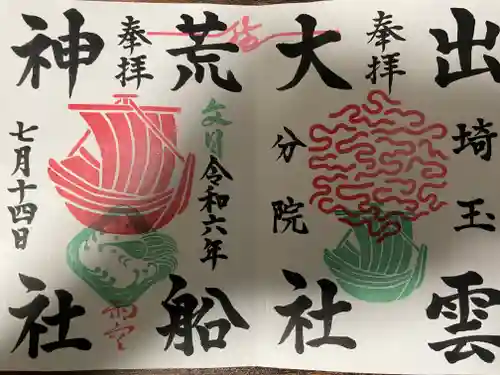 出雲
奉拝
大社
埼玉
分院
荒船
奉拝
神社
文月
令和六年
七月十四日